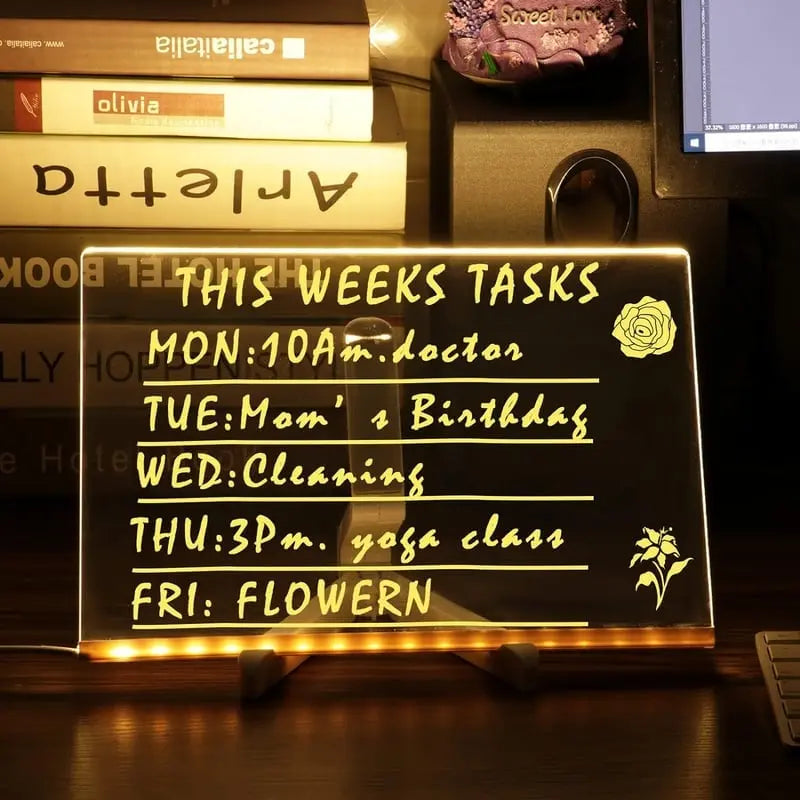 www.caliaitalia
caliaitalia
olivia
Arletta
THE HOTEL BOOK
Sweet Love
THIS WEEKS TASKS
MON:10Am.doctor
TUE:Mom's Birthday
WED:Cleaning
THU:3Pm. yoga class
FRI: FLOWERN